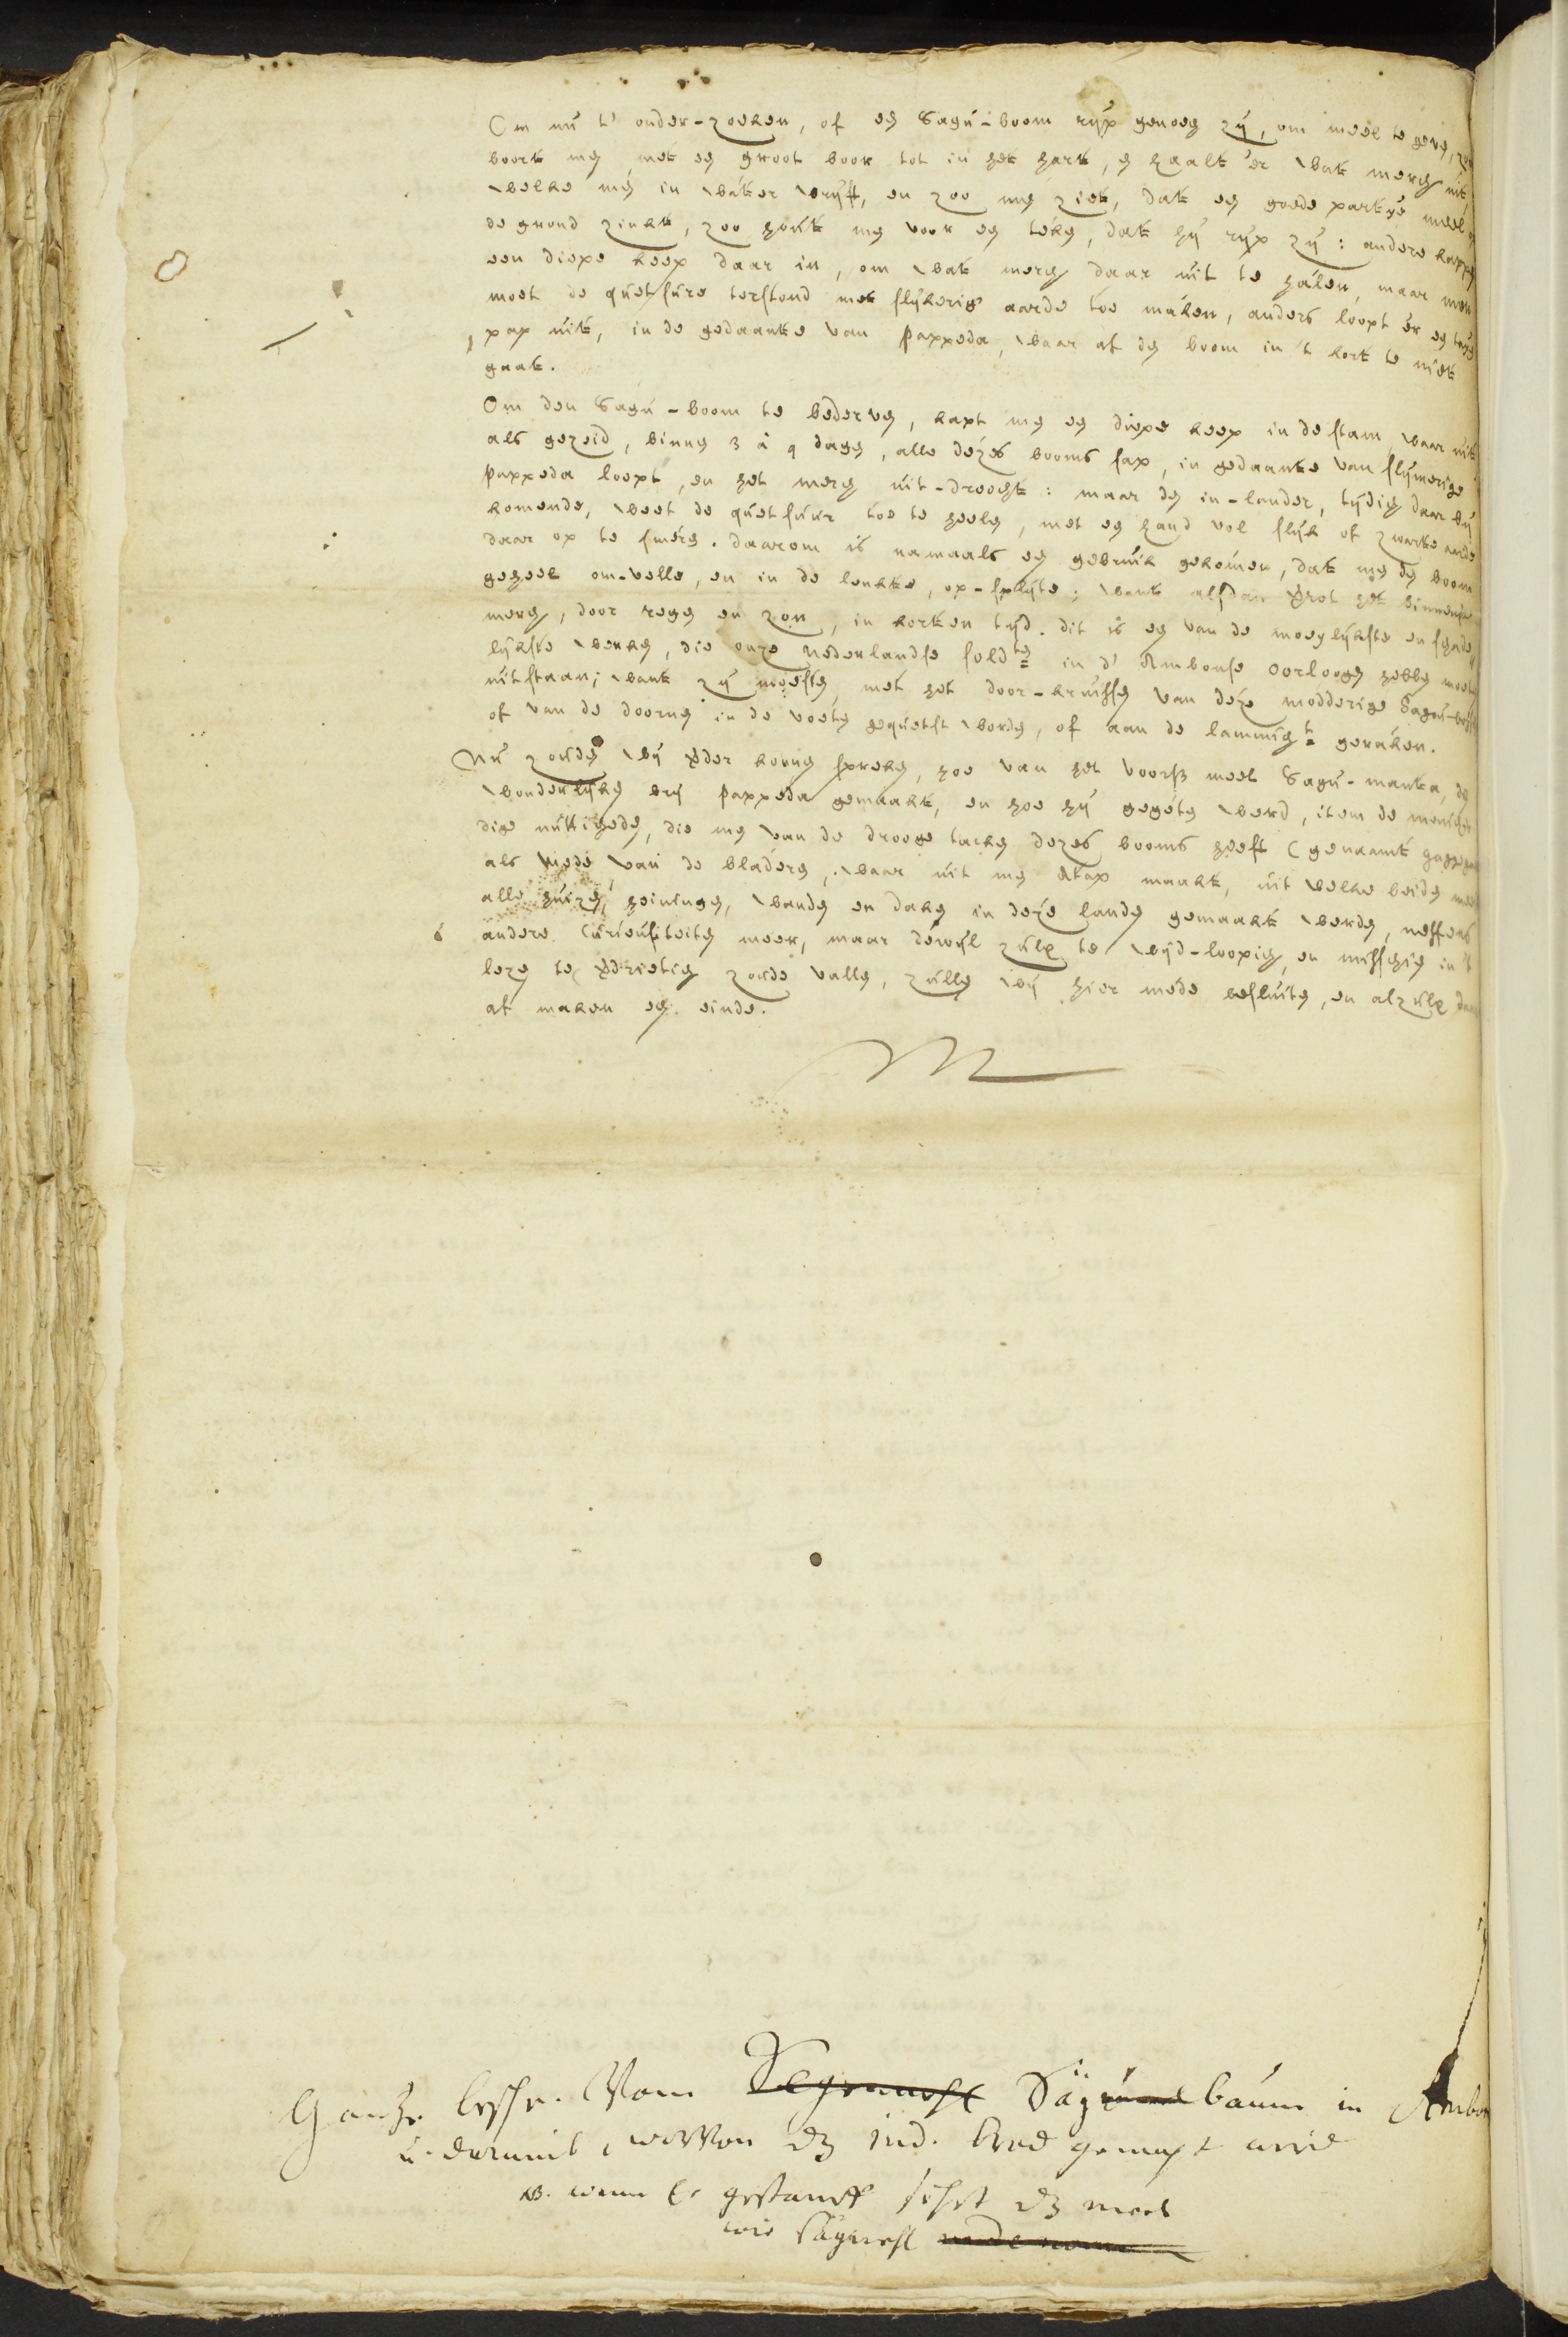 Om nu t' onder-zoeken, of een Sagu-boom ryp genoeg zÿ, om meel te geven, zoo
boort men met een groot boor tot in het hart, en haalt 'er wat merg uit
welke men in water wrÿft, en zoo men ziet, dat een goede partye meel
de grond zinkt, zoo hout men voor een teken, dat hÿ rÿp zÿ: andere kappen
een diepe keep daar in, om wat merg daar uit te halen, maar men
moet de quetsure terstond met slÿkerige aarde toe maken, anders loopt 'er een
pap uit, in de gedaante van Pappeda, waar af den boom in 't kort te niet
gaat.
Om den Sagu-boom te bederven, kapt men een diepe keep in de stam, waar uit
als gezeid, binnen 3 à 4 dagen, alle dezes booms sap, in gedaante van slÿmerige
Pappeda loopt, en het merg uit-droogt: maar den in-lander, tÿdig daar bÿ
komende, weet de quetsuur toe te heelen, met een hand vol slÿk of zwarte aarde
daar op te smeren. daarom is namaals een gebruik gekomen, dat men den boom
geheel om-velle, en in de lenkte, op-splÿte; want alsdan verrot het binnenste
merg, door regen en zon, in korten tÿd. dit is een van de moeylÿkste en schade-
lÿkste werken, die onze Nederlandse soldten in d' Ambonse oorlogen hebben moeten
uitstaan; want zÿ moesten met het door-kruissen van deze modderige Sagu-bossen
of van de doornen in de voeten gequetst worden, of aan de lammight geraken.
Nu zouden wÿ verder konnen spreken, hoe van het voorsz meel Sagu-manta, de
wonderlÿke brÿ Pappeda gemaakt, en hoe hÿ gegeten werd, item de menich-
dige nuttigheden, die men van de drooge tacken dezes booms heeft (genaamt
als mede van de bladeren, waar uit men Atap maakt, uit welke beide mee
alle huizen, heininge, wanden en daken in deze landen gemaakt werden, neffens
andere curieusiteiten meer, maar dewÿl zulx te wÿd-loopig, en misschien in 't
lezen te verdrietig zoude vallen, zullen wÿ hier mede besluiten, en alzulx daar
af maken een einde.
Gantze beschr. Vom Segumehl Sägumelbaum in Ambon
u. darmit, worvon dz ind. Brod gemacht wird
NB. wenn Er gestampft sihet dz meel
wie Sägmehl